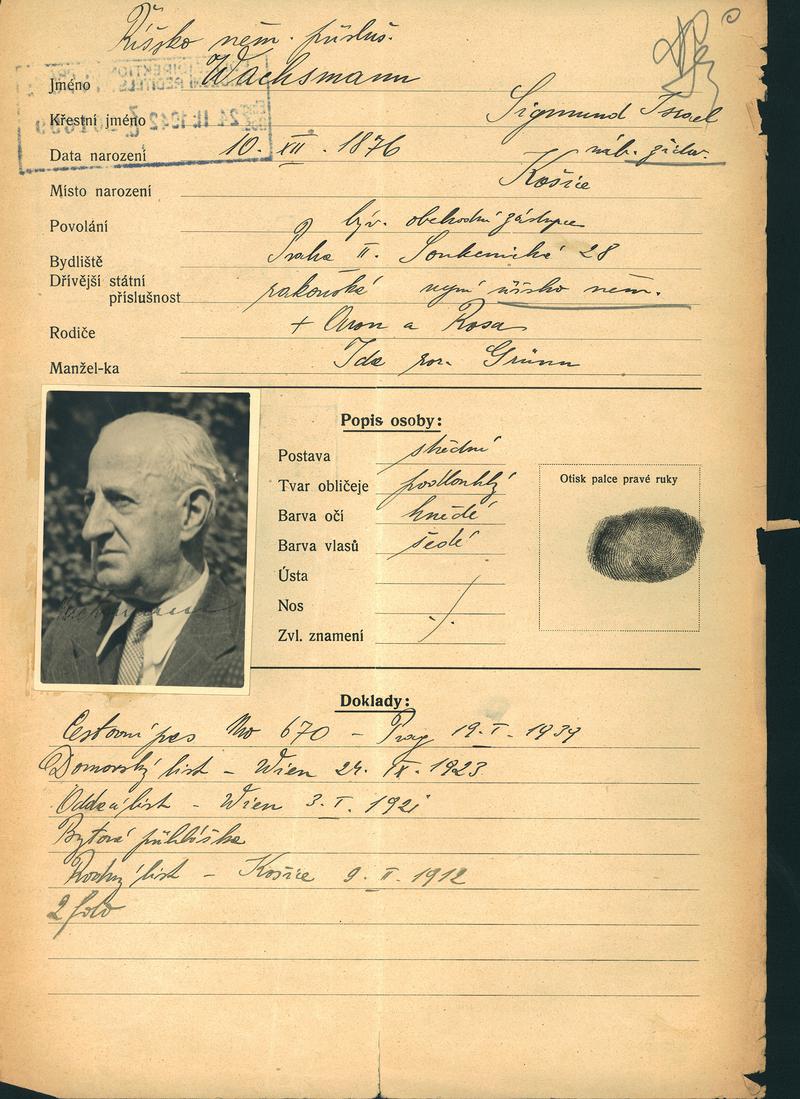 Říšsko něm. přísluš.
Jméno Wachsmann
Křestní jméno Sigmund Israel
Data narození 10. XII. 1876 náb. židov.
Místo narození Košice
Povolání býv. obchodní zástupce
Bydliště Praha II. Soukenická 28
Dřívější státní
příslušnost rakouská nyní říšsko něm.
Rodiče + Aron a Rosa
Manžel-ka Ida roz. Grünn
Popis osoby:
Postava střední
Tvar obličeje podlouhlý
Barva očí hnědé
Barva vlasů šedé
Ústa
Nos
Zvl. znamení
Otisk palce pravé ruky
Wachsmann
Doklady:
Cestovní pas No 670 – Prag 19. I. 1939
Domovský list – Wien 24. IX. 1923
Oddací list – Wien 3. I. 1921
Bytová přihláška
Rodný list – Košice 9. II. 1912
2 foto